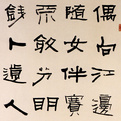 偶向江邊
隨女伴賽
不敢分明
錢卜遠人